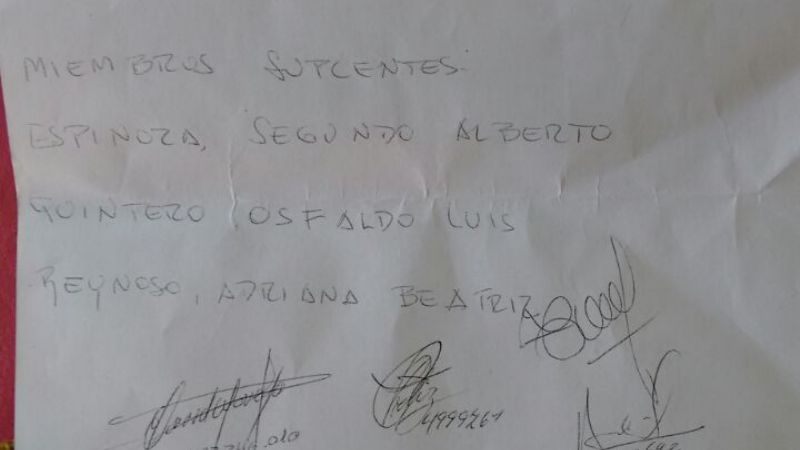 MIEMBROS SUPLENTES.
ESPINOZA, SEGUNDO ALBERTO
QUINTERO, OSFALDO LUIS
REYNOSO, ADRIANA BEATRIZ
4999261